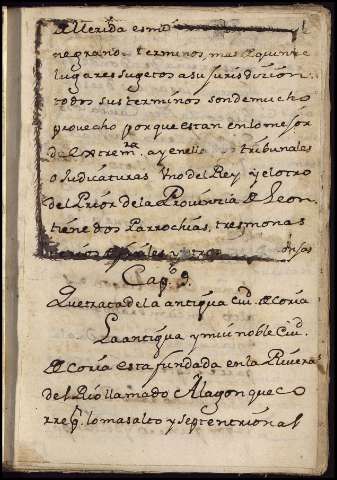 de Merida es mui
negrano. terminos, mas de quinze
lugares sugetos a su jurisdizion.
todos sus terminos son de mucho
provecho porque estan en lo mejor
de Extremra. ay en ella tribunales
o Judicaturas Uno del Rey y el otro
del Prior de la Provintia de Leon
tiene dos Parrochias, tres monas
terios y tres onjas
Capo. 9.
Que trata de la antigua Ciud. de Coria
La antigua y mui noble Ciud.
de Coria esta fundada en la Rivera
del Rio llamado Alagon que co
rre pr. lo mas alto y septentrional